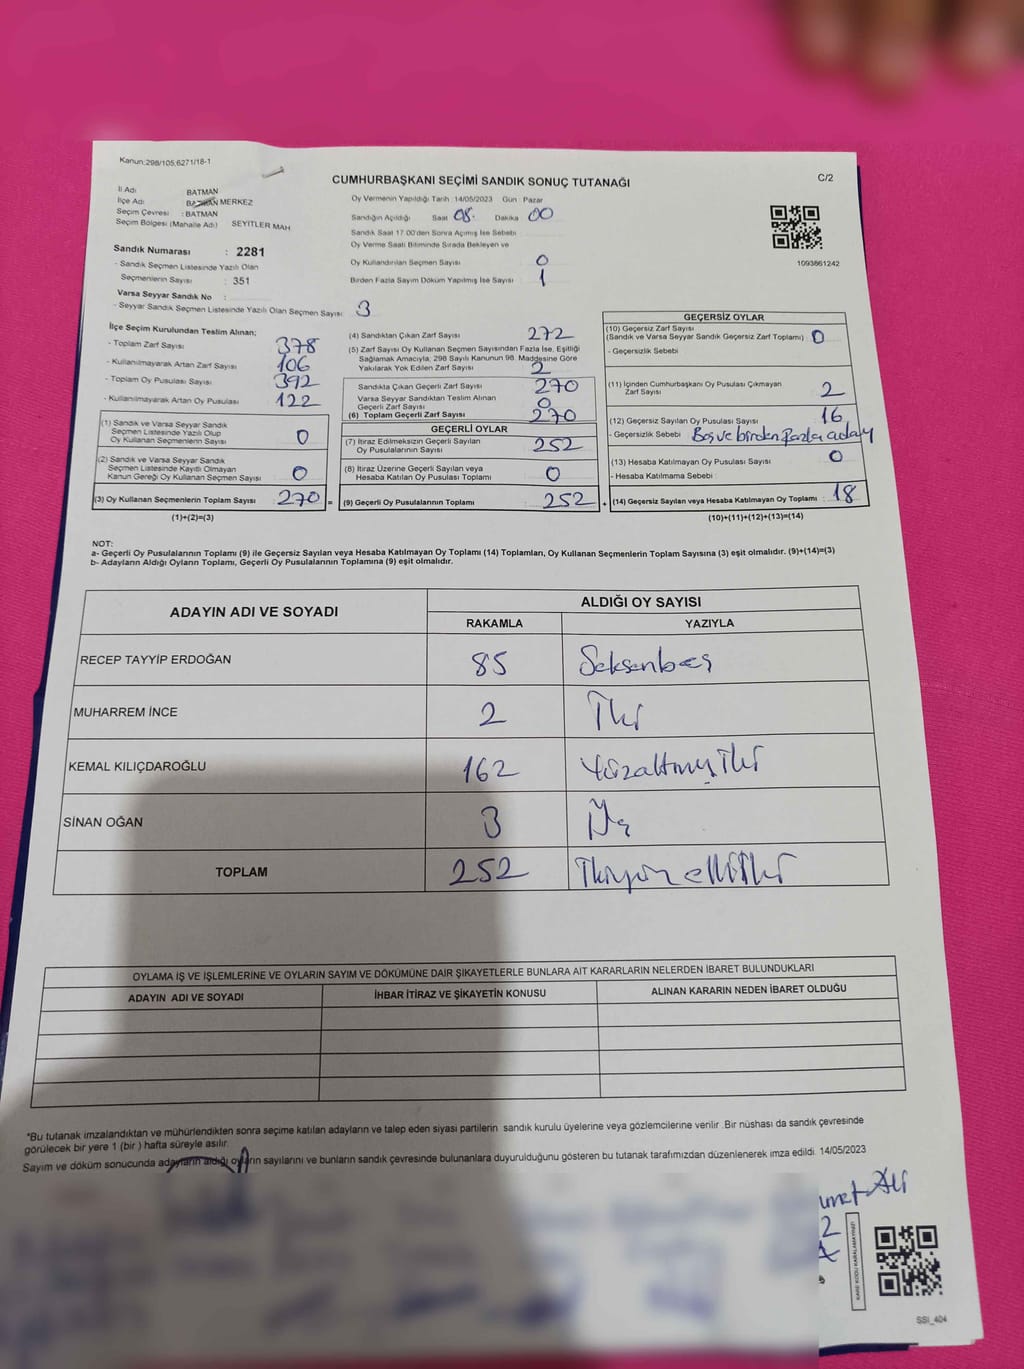 Kanun:298/105,6271/18-1
CUMHURBAŞKANI SEÇİMİ SANDIK SONUÇ TUTANAĞI
C/2
İl Adı BATMAN
İlçe Adı MERKEZ
Seçim Çevresi : BATMAN
Seçim Bölgesi (Mahalle Adı) SEYİTLER MAH
Sandık Numarası : 2281
- Sandık Seçmen Listesinde Yazılı Olan
Seçmenlerin Sayısı : 351
Varsa Seyyar Sandık No :
- Seyyar Sandık Seçmen Listesinde Yazılı Olan Seçmen Sayısı: 3
Oy Vermenin Yapıldığı Tarih 14/05/2023 Gün : Pazar
Sandığın Açıldığı Saat 08. Dakika 00
Sandık Saat 17.00'den Sonra Açımış İse Sebebi
Oy Verme Saati Bitiminde Sırada Bekleyen ve
Oy Kullandırılan Seçmen Sayısı 0
Birden Fazla Sayım Döküm Yapılmış İse Sayısı 1
1093861242
İlçe Seçim Kurulundan Teslim Alınan;
- Toplam Zarf Sayısı 378
- Kullanılmayarak Artan Zarf Sayısı 106
- Toplam Oy Pusulası Sayısı 392
- Kullanılmayarak Artan Oy Pusulası 122
(1) Sandık ve Varsa Seyyar Sandık
Seçmen Listesinde Yazılı Olup
Oy Kullanan Seçmenlerin Sayısı 0
(2) Sandık ve Varsa Seyyar Sandık
Seçmen Listesinde Kayıtlı Olmayan
Kanun Gereği Oy Kullanan Seçmen Sayısı 0
(3) Oy Kullanan Seçmenlerin Toplam Sayısı 270 =
(1)+(2)=(3)
(4) Sandıktan Çıkan Zarf Sayısı 272
(5) Zarf Sayısı Oy Kullanan Seçmen Sayısından Fazla İse, Eşitliği
Sağlamak Amacıyla; 298 Sayılı Kanunun 98. Maddesine Göre
Yakılarak Yok Edilen Zarf Sayısı 2
Sandıkta Çıkan Geçerli Zarf Sayısı 270
Varsa Seyyar Sandıktan Teslim Alınan
Geçerli Zarf Sayısı 0
(6) Toplam Geçerli Zarf Sayısı 270
GEÇERLİ OYLAR
(7) İtiraz Edilmeksizin Geçerli Sayılan
Oy Pusulasının Sayısı 252
(8) İtiraz Üzerine Geçerli Sayılan veya
Hesaba Katılan Oy Pusulası Toplamı 0
(9) Geçerli Oy Pusulalarının Toplamı 252 +
GEÇERSİZ OYLAR
(10) Geçersiz Zarf Sayısı
(Sandık ve Varsa Seyyar Sandık Geçersiz Zarf Toplamı) : 0
- Geçersizlik Sebebi
(11) İçinden Cumhurbaşkanı Oy Pusulası Çıkmayan
Zarf Sayısı 2
(12) Geçersiz Sayılan Oy Pusulası Sayısı 16
- Geçersizlik Sebebi Boş ve birden fazla aday
(13) Hesaba Katılmayan Oy Pusulası Sayısı 0
- Hesaba Katılmama Sebebi :
(14) Geçersiz Sayılan veya Hesaba Katılmayan Oy Toplamı : 18
(10)+(11)+(12)+(13)=(14)
NOT:
a- Geçerli Oy Pusulalarının Toplamı (9) ile Geçersiz Sayılan veya Hesaba Katılmayan Oy Toplamı (14) Toplamları, Oy Kullanan Seçmenlerin Toplam Sayısına (3) eşit olmalıdır. (9)+(14)=(3)
b- Adayların Aldığı Oyların Toplamı, Geçerli Oy Pusulalarının Toplamına (9) eşit olmalıdır.
ADAYIN ADI VE SOYADI
ALDIĞI OY SAYISI
RAKAMLA YAZIYLA
RECEP TAYYİP ERDOĞAN 85 Seksenbeş
MUHARREM İNCE 2 İki
KEMAL KILIÇDAROĞLU 162 Yüzaltmışİki
SİNAN OĞAN 3 Üç
TOPLAM 252 İkiyüzelliİki
OYLAMA İŞ VE İŞLEMLERİNE VE OYLARIN SAYIM VE DÖKÜMÜNE DAİR ŞİKAYETLERLE BUNLARA AİT KARARLARIN NELERDEN İBARET BULUNDUKLARI
ADAYIN ADI VE SOYADI İHBAR İTİRAZ VE ŞİKAYETİN KONUSU ALINAN KARARIN NEDEN İBARET OLDUĞU
*Bu tutanak imzalandıktan ve mühürlendikten sonra seçime katılan adayların ve talep eden siyasi partilerin sandık kurulu üyelerine veya gözlemcilerine verilir. Bir nüshası da sandık çevresinde
görülecek bir yere 1 (bir) hafta süreyle asılır.
Sayım ve döküm sonucunda adayların aldığı oyların sayılarını ve bunların sandık çevresinde bulunanlara duyurulduğunu gösteren bu tutanak tarafımızdan düzenlenerek imza edildi. 14/05/2023
Ali
2
KARE KODU KARALAMAYINIZ!
SSI_404